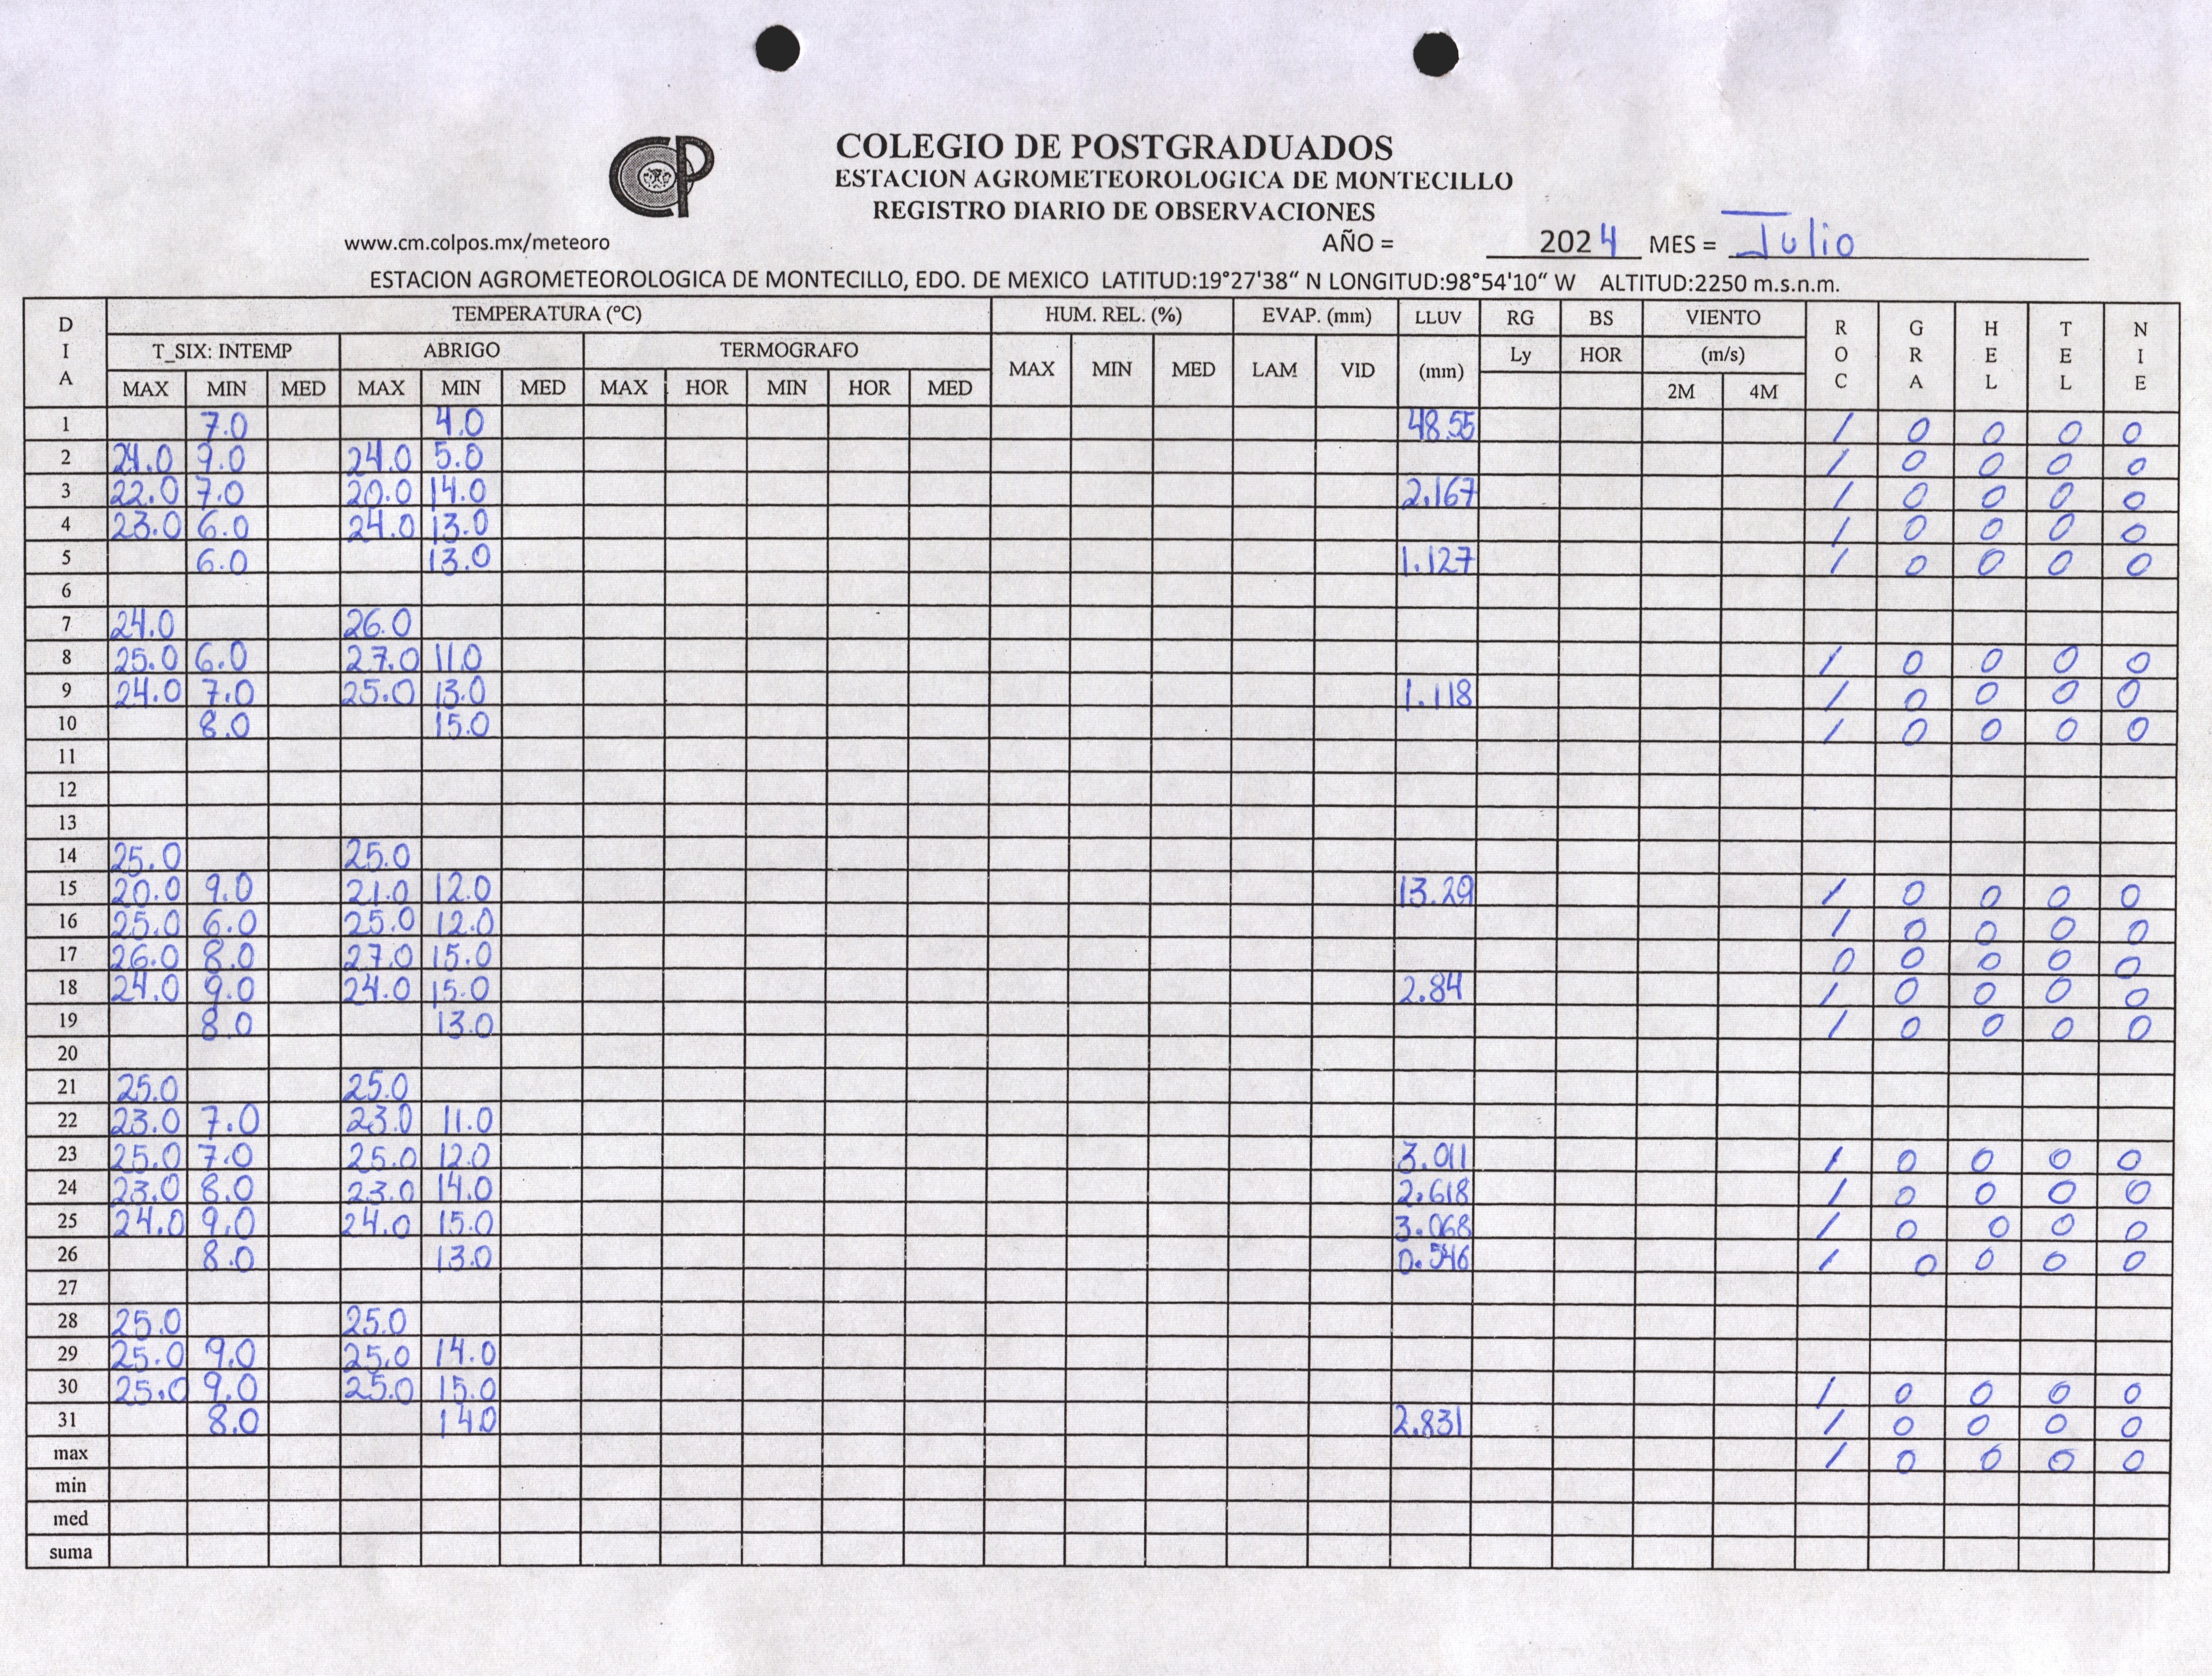 COLEGIO DE POSTGRADUADOS
CP
ESTACION AGROMETEOROLOGICA DE MONTECILLO
REGISTRO DIARIO DE OBSERVACIONES
www.cm.colpos.mx/meteoro AÑO = 2024 MES = Julio
ESTACION AGROMETEOROLOGICA DE MONTECILLO, EDO. DE MEXICO LATITUD:19°27'38“ N LONGITUD:98°54'10“ W ALTITUD:2250 m.s.n.m.
DIA TEMPERATURA (°C) HUM. REL. (%) EVAP. (mm) LLUV RG BS VIENTO ROC GRA HEL TEL NIE
T_SIX: INTEMP ABRIGO TERMOGRAFO MAX MIN MED LAM VID (mm) Ly HOR (m/s)
MAX MIN MED MAX MIN MED MAX HOR MIN HOR MED 2M 4M
1 7.0 4.0 48.55 / 0 0 0 0
2 24.0 9.0 24.0 5.0 / 0 0 0 0
3 22.0 7.0 20.0 14.0 2.167 / 0 0 0 0
4 23.0 6.0 24.0 13.0 / 0 0 0 0
5 6.0 13.0 1.127 / 0 0 0 0
6
7 24.0 26.0
8 25.0 6.0 27.0 11.0 / 0 0 0 0
9 24.0 7.0 25.0 13.0 1.118 / 0 0 0 0
10 8.0 15.0 / 0 0 0 0
11
12
13
14 25.0 25.0
15 20.0 9.0 21.0 12.0 13.29 / 0 0 0 0
16 25.0 6.0 25.0 12.0 / 0 0 0 0
17 26.0 8.0 27.0 15.0 0 0 0 0 0
18 24.0 9.0 24.0 15.0 2.84 / 0 0 0 0
19 8.0 13.0 / 0 0 0 0
20
21 25.0 25.0
22 23.0 7.0 23.0 11.0
23 25.0 7.0 25.0 12.0 3.011 / 0 0 0 0
24 23.0 8.0 23.0 14.0 2.618 / 0 0 0 0
25 24.0 9.0 24.0 15.0 3.068 / 0 0 0 0
26 8.0 13.0 0.546 / 0 0 0 0
27
28 25.0 25.0
29 25.0 9.0 25.0 14.0
30 25.0 9.0 25.0 15.0 / 0 0 0 0
31 8.0 14.0 2.831 / 0 0 0 0
max / 0 0 0 0
min
med
suma